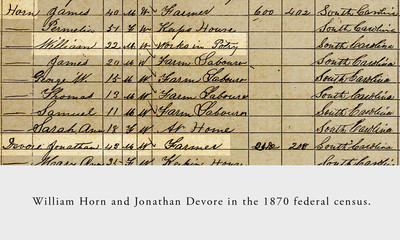 Horn James 40 M W Farmer 600 402 South Carolina
Permelia 51 F W Keeps House South Carolina
William 22 M W Works in Potry South Carolina
James 20 M W Farm Labourer South Carolina
George W. 15 M W Farm Labourer South Carolina
Thomas 13 M W Farm Labourer South Carolina
Samuel 11 M W Farm Labourer South Carolina
Sarah Ann 18 F W At Home South Carolina
Devore Jonathan 43 M W Farmer 208 South Carolina
Mary Ann F W Keeps House South Carolina
William Horn and Jonathan Devore in the 1870 federal census.